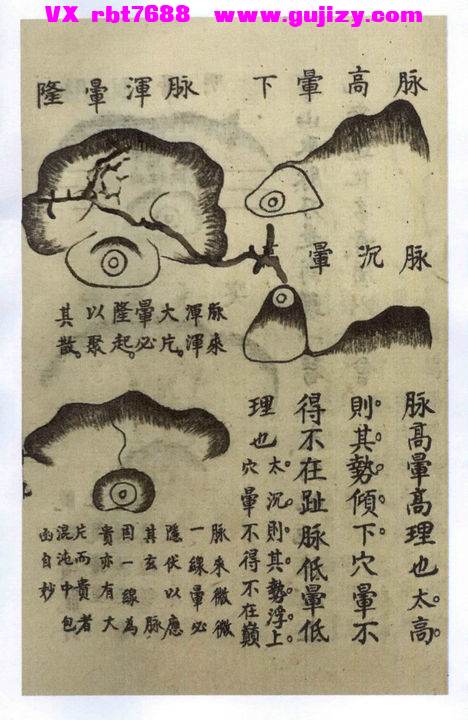 VX rbt7688 www.gujizy.com
脉高暈下
脉沉暈
脉高暈高理也。太高。
則其勢傾下。穴暈不
得不在趾脉低暈低
理也。太沉。則其勢浮上。
穴暈不得不在巔
脉渾暈隆
脉來
渾渾
大片。
暈必
隆起。
以聚
其散。
脉來微微
一線暈必
隱伏以應
其玄 脉
因一線為
貴亦有大
片而貴者
混沌中包
函自妙